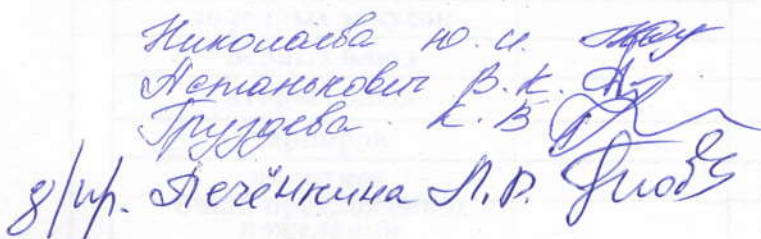 Николаева Ю.И.
Астанькович В.К.
Груздева К.В
д/пр. Печёнкина Л.В.